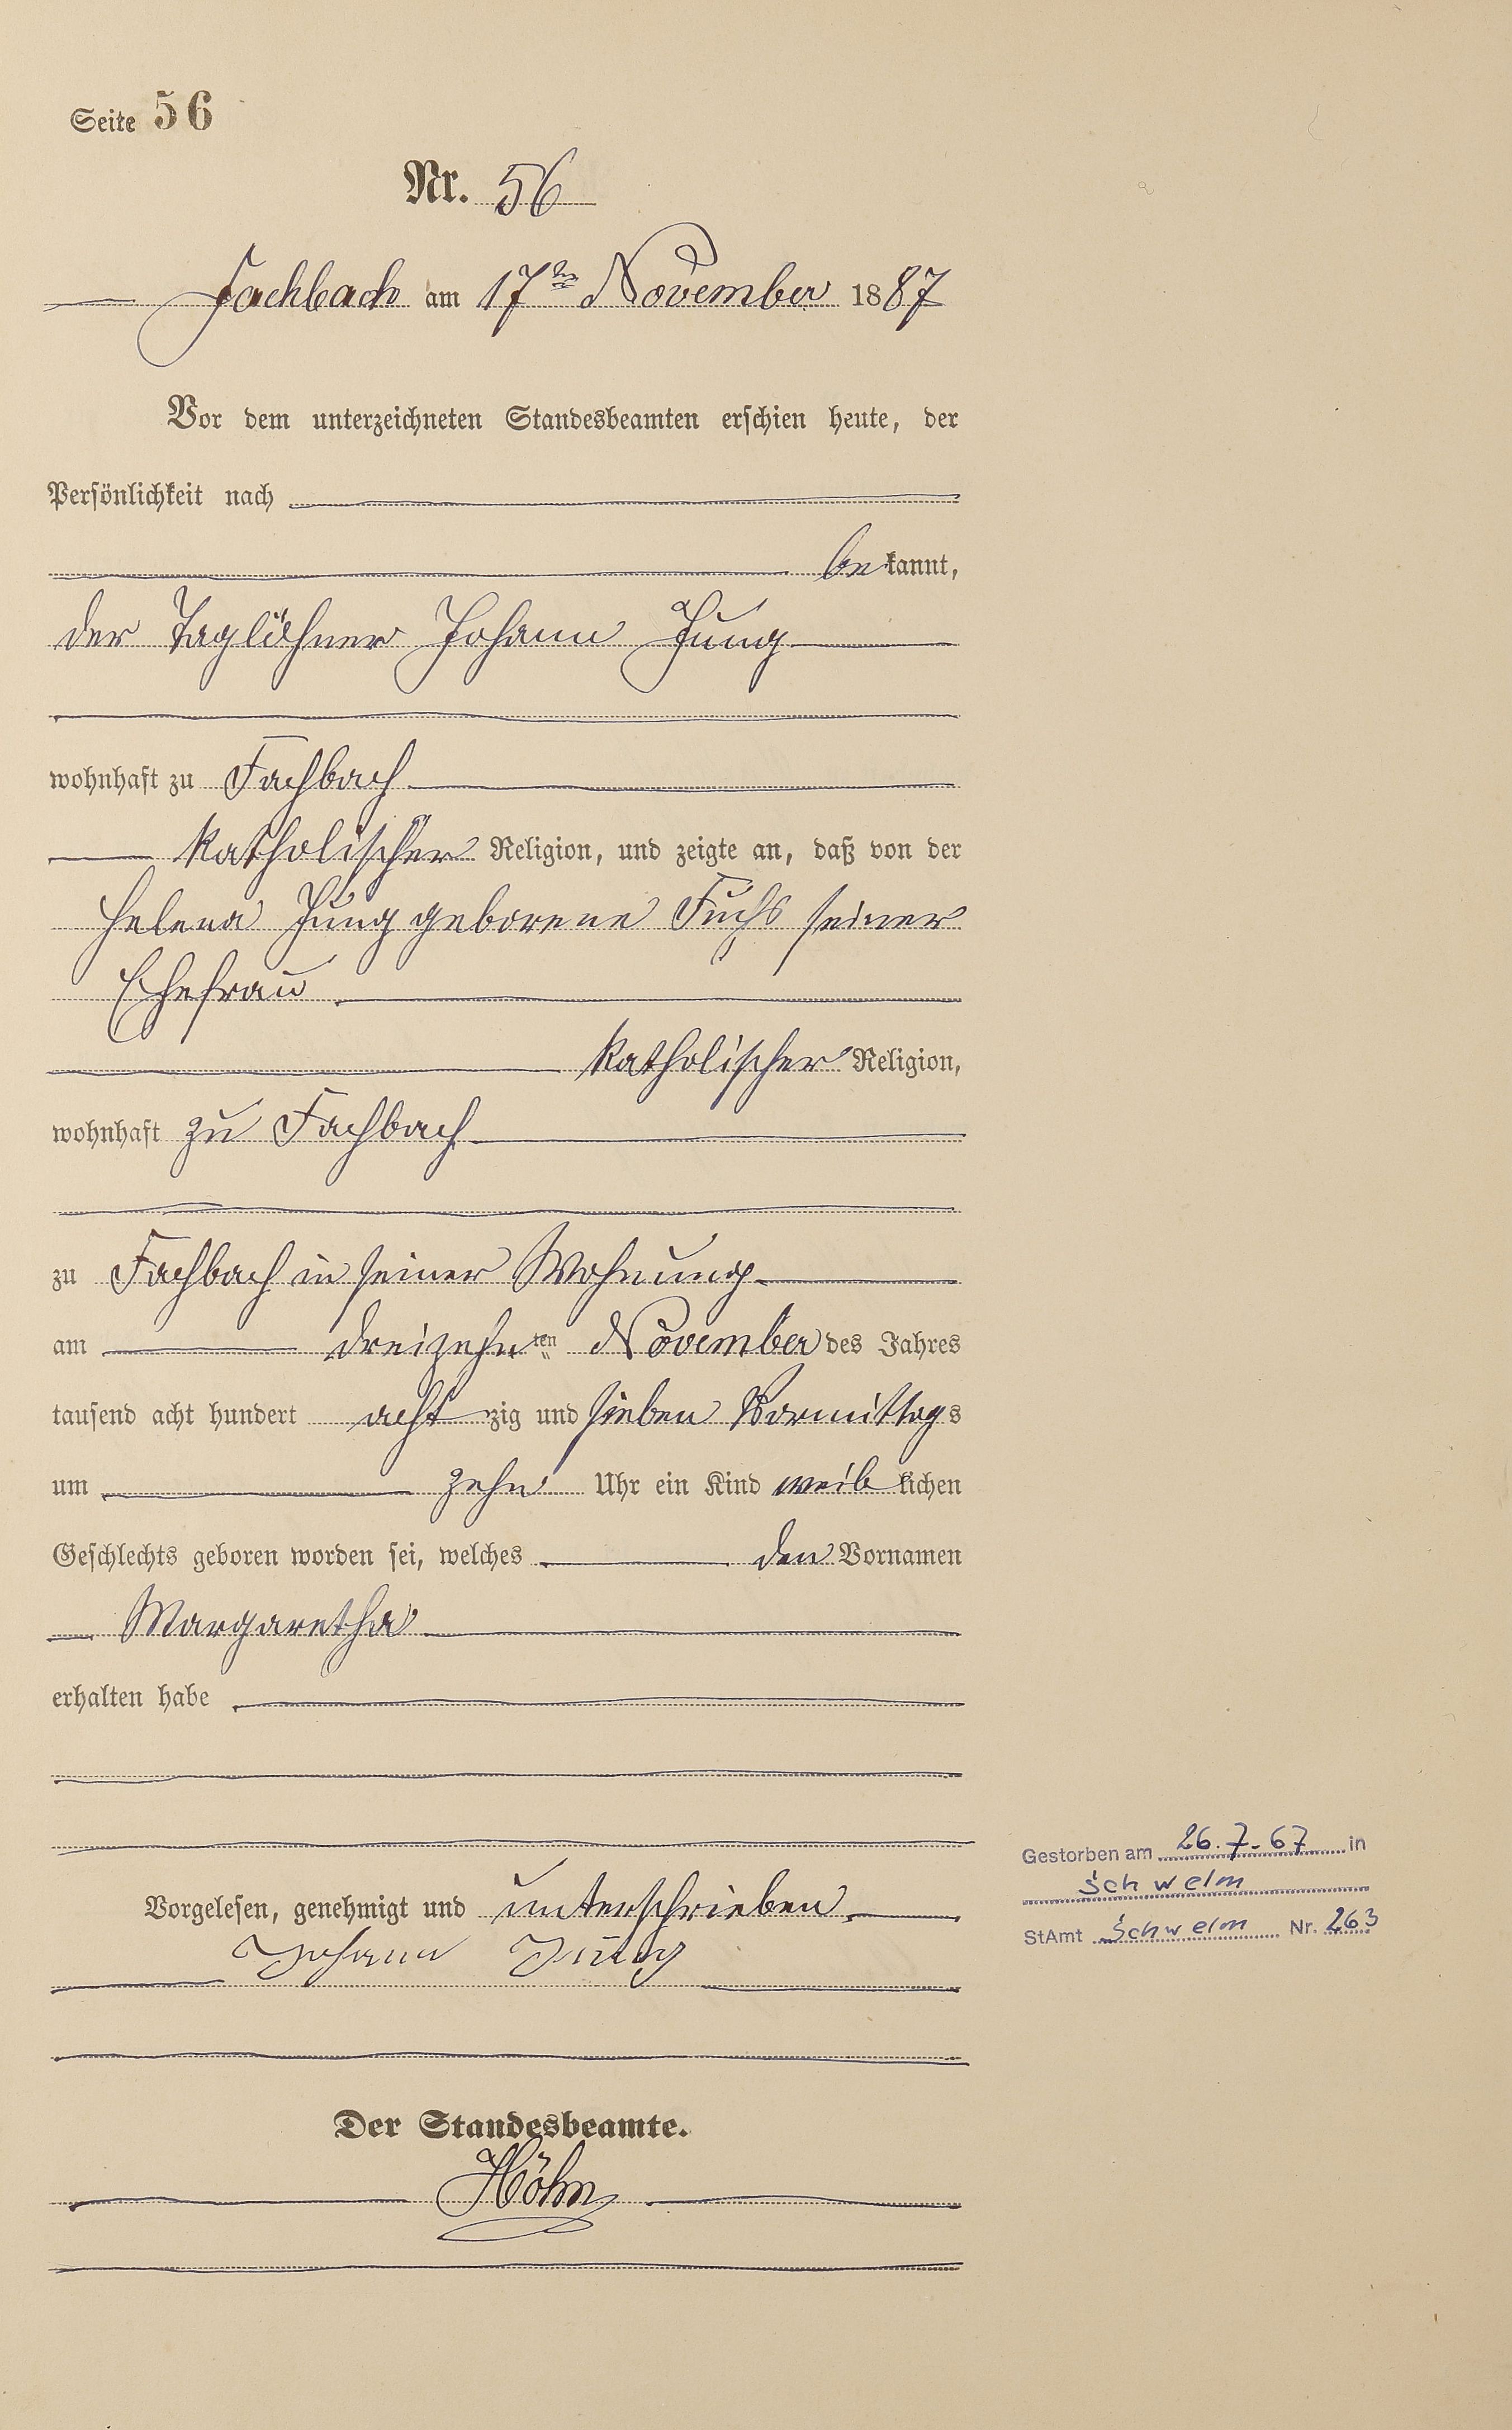 Seite 56
Nr. 56
Fachbach am 17ten November 1887
Vor dem unterzeichneten Standesbeamten erschien heute, der
Persönlichkeit nach
bekannt,
der Taglöhner Johann Jung
wohnhaft zu Fachbach
katholischer Religion, und zeigte an, daß von der
Helena Jung geborene Fuchs seiner
Ehefrau
katholischer Religion,
wohnhaft zu Fachbach
zu Fachbach in seiner Wohnung
am dreizehnten November des Jahres
tausend acht hundert achtzig und sieben Vormittags
um zehn Uhr ein Kind weiblichen
Geschlechts geboren worden sei, welches den Vornamen
Margaretha
erhalten habe
Vorgelesen, genehmigt und unterschrieben
Johann Jung
Der Standesbeamte.
Höhn
Gestorben am 26.7.67 in
Schwelm
StAmt Schwelm Nr. 263